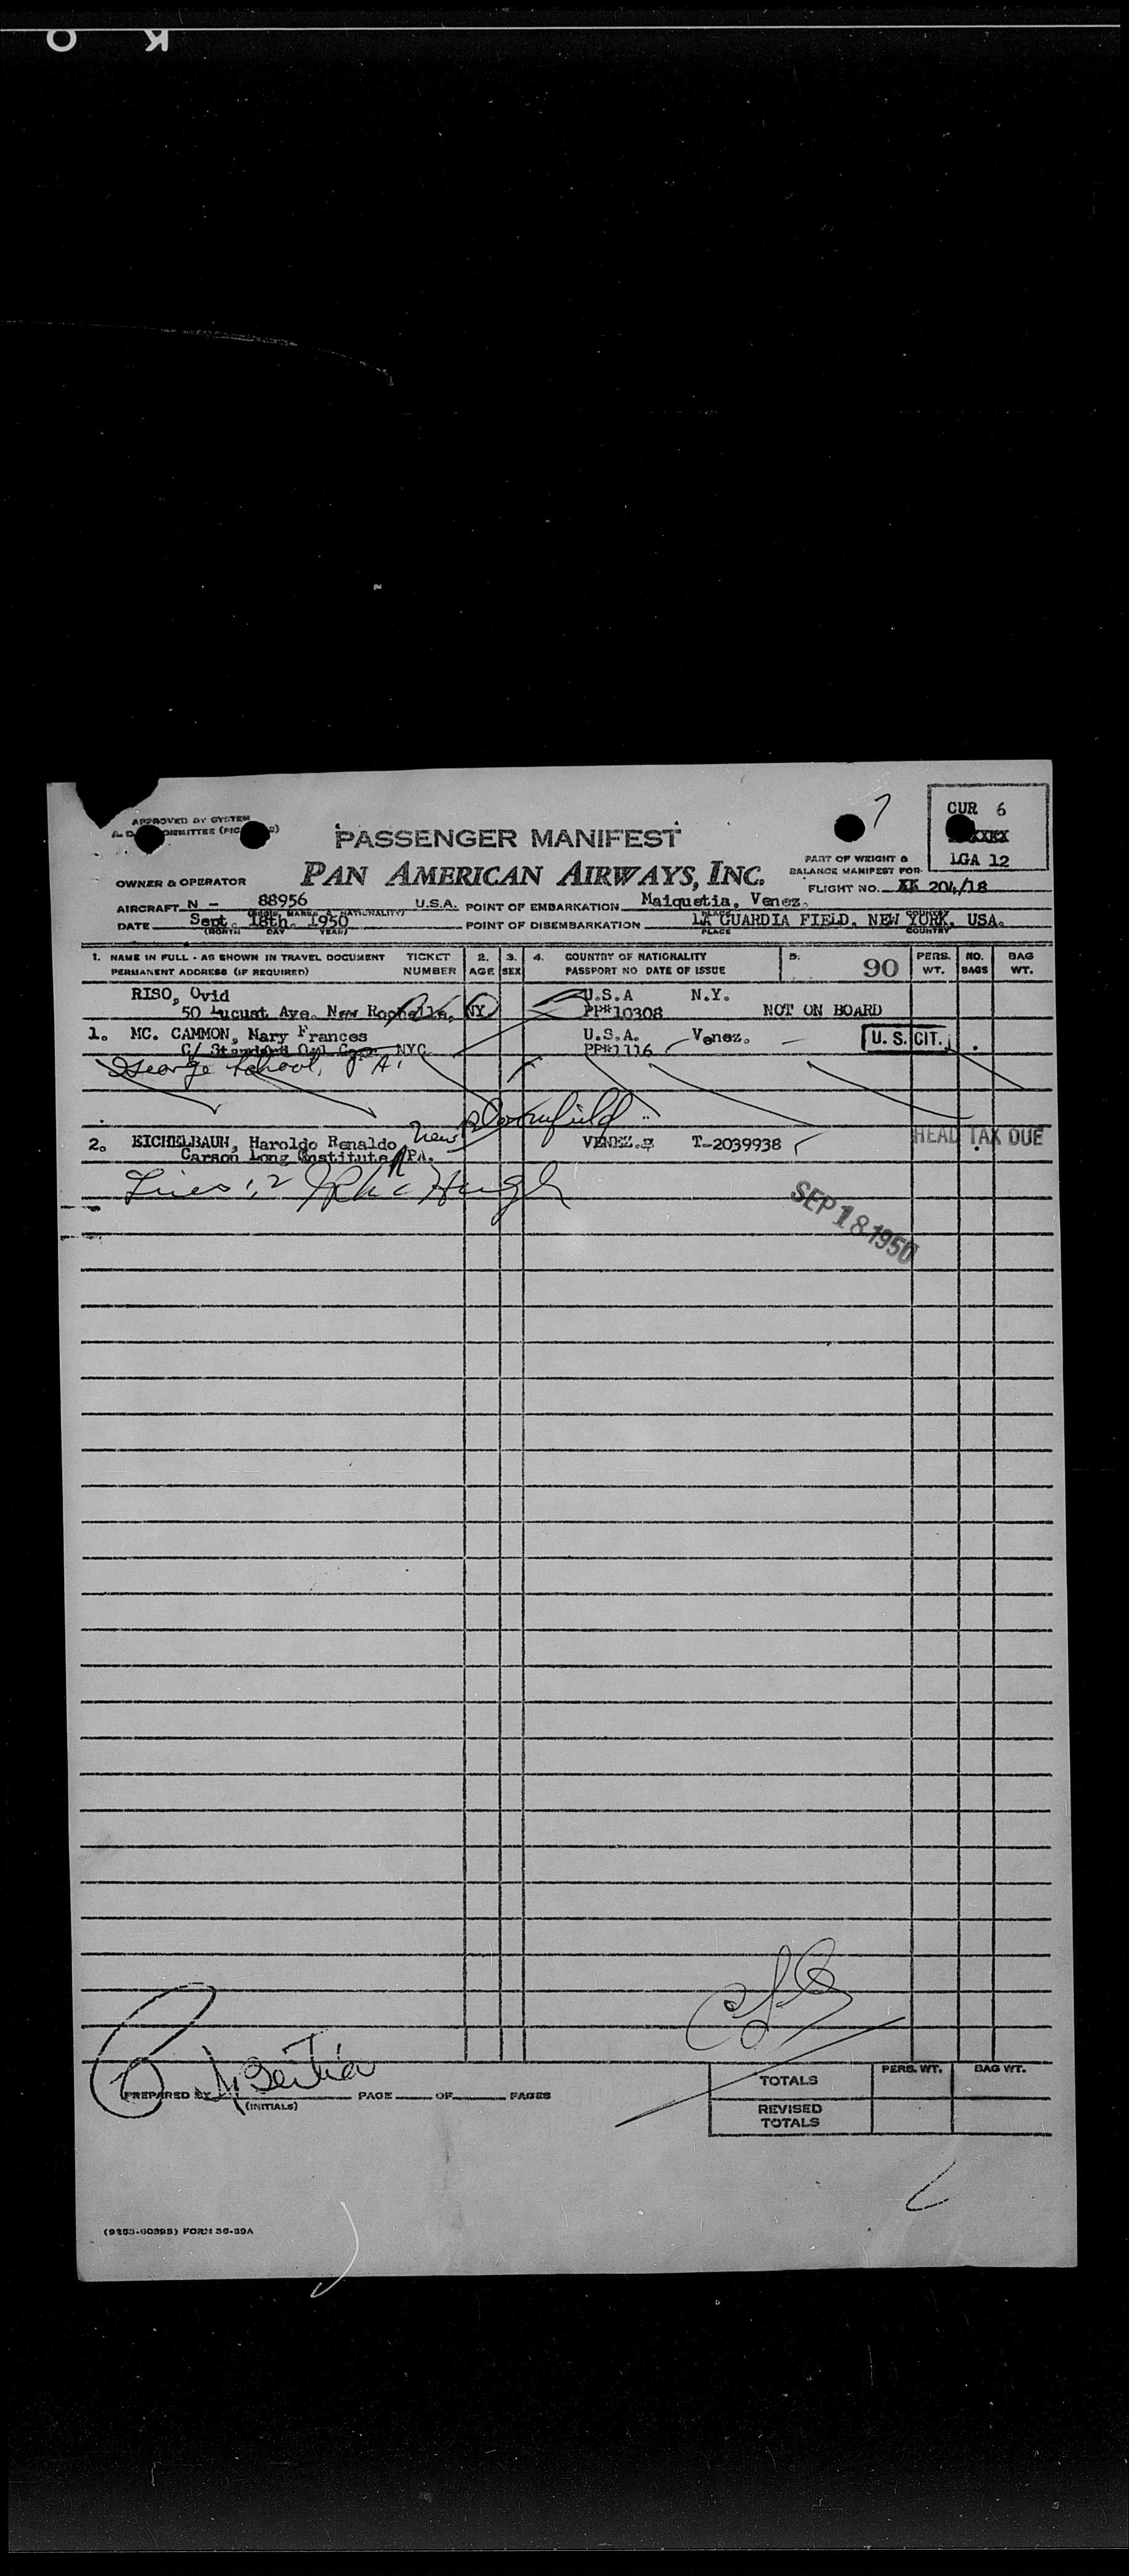 O K
APPROVED BY SYSTEM
PASSENGER MANIFEST
PAN AMERICAN AIRWAYS, INC.
CUR 6
LGA 12
PART OF WEIGHT &
BALANCE MANIFEST FOR
FLIGHT NO. XX 204/18
OWNER & OPERATOR
AIRCRAFT N - 88956 U.S.A. POINT OF EMBARKATION Maiquetia, Venez.
DATE Sept. 18th. 1950 POINT OF DISEMBARKATION LA GUARDIA FIELD, NEW YORK, USA.
(MONTH DAY YEAR) PLACE COUNTRY
1. NAME IN FULL - AS SHOWN IN TRAVEL DOCUMENT TICKET 2. 3. 4. COUNTRY OF NATIONALITY 5. 90 PERS. NO. BAG
PERMANENT ADDRESS (IF REQUIRED) NUMBER AGE SEX PASSPORT NO DATE OF ISSUE WT. BAGS WT.
RISO, Ovid U.S.A N.Y.
50 Lucust Ave. New Rochelle, NY PP#10308 NOT ON BOARD
1. MC. CAMMON, Mary Frances U.S.A. Venez. U. S. CIT.
C/ Standard Oil Corp. NYC PP#1116
George School, PA.
New Bloomfield
2. EICHELBAUM, Haroldo Renaldo VENEZ. T-2039938 HEAD TAX DUE
Carson Long Institute, PA.
Lines 1,2 McHugh
SEP 18 1950
PREPARED BY PAGE OF PAGES
(INITIALS)
TOTALS PERS. WT. BAG WT.
REVISED
TOTALS
FORM 36-39A